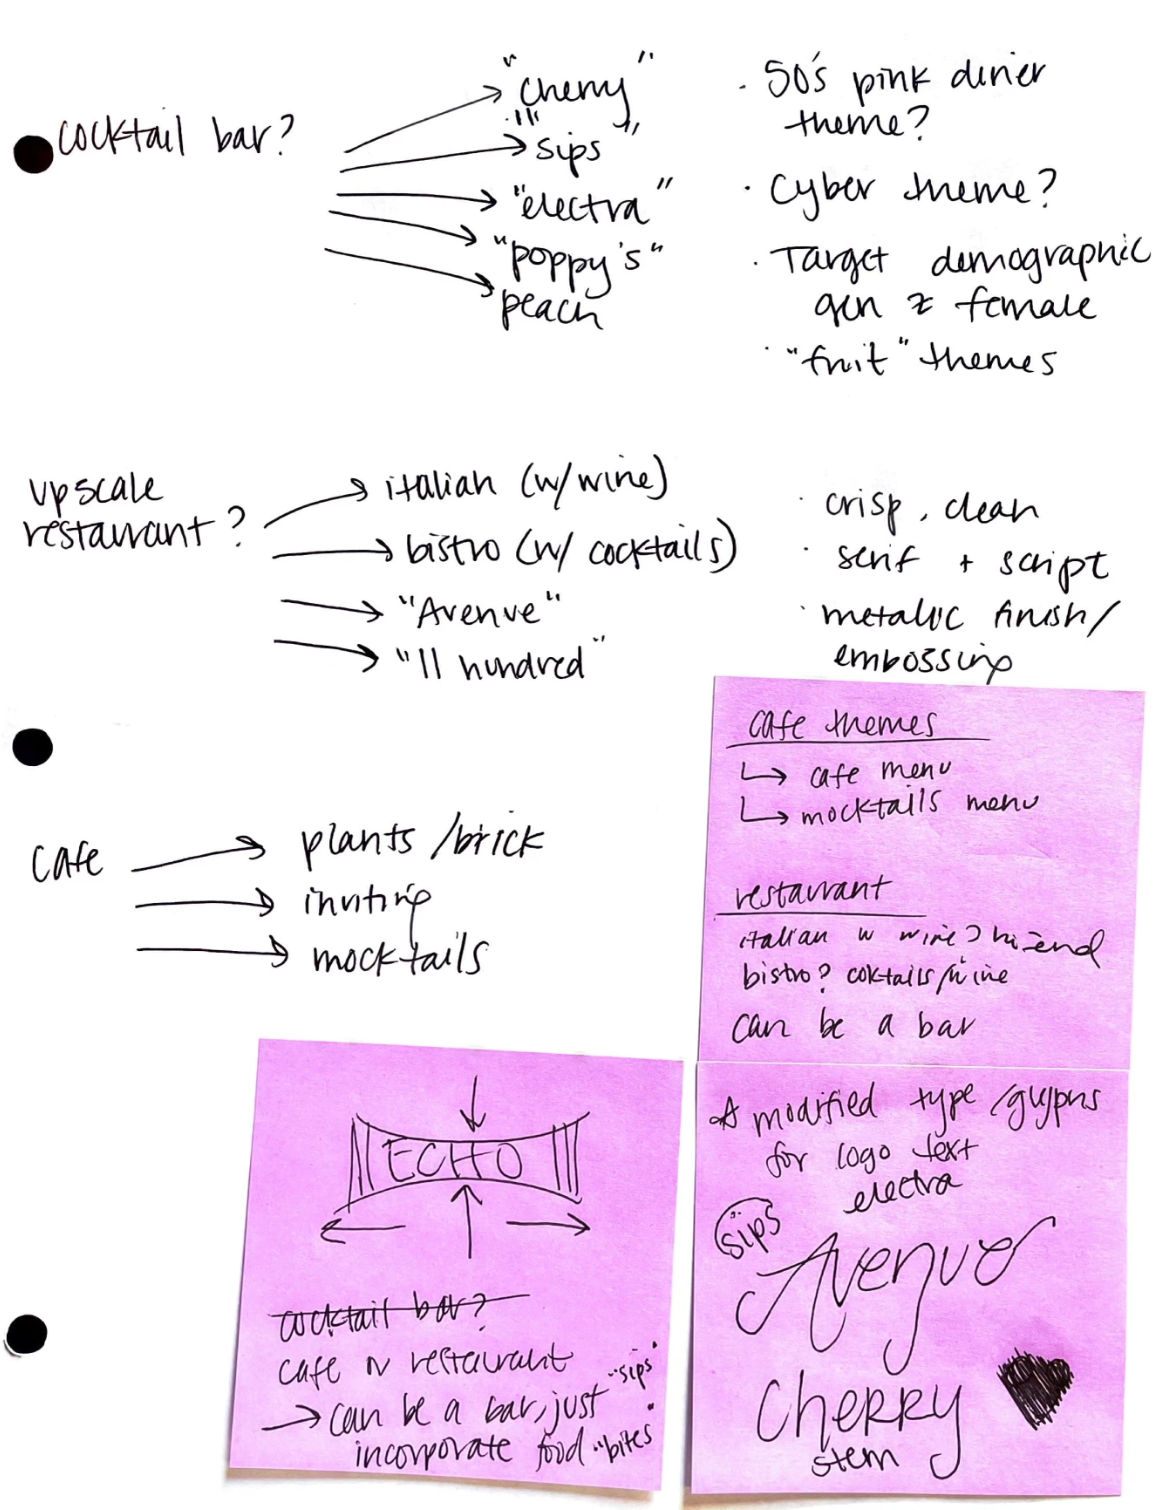 cocktail bar?
"cherry"
"sips"
"electra"
"poppy's"
peach
· 50's pink diner
theme?
· Cyber theme?
· Target demographic
gen z female
· "fruit" themes
upscale
restaurant?
italian (w/wine)
bistro (w/ cocktails)
"Avenue"
"11 hundred"
· crisp, clean
· serif + script
· metallic finish/
embossing
cafe
plants/brick
inviting
mocktails
cafe themes
cafe menu
mocktails menu
restaurant
italian w wine? hi-end
bistro? coktails/wine
can be a bar
ECHO
cocktail bar?
cafe restaurant
can be a bar, just "sips"
incorporate food "bites"
modified type/glyphs
for logo text
electra
sips
Avenue
CHERRY
stem